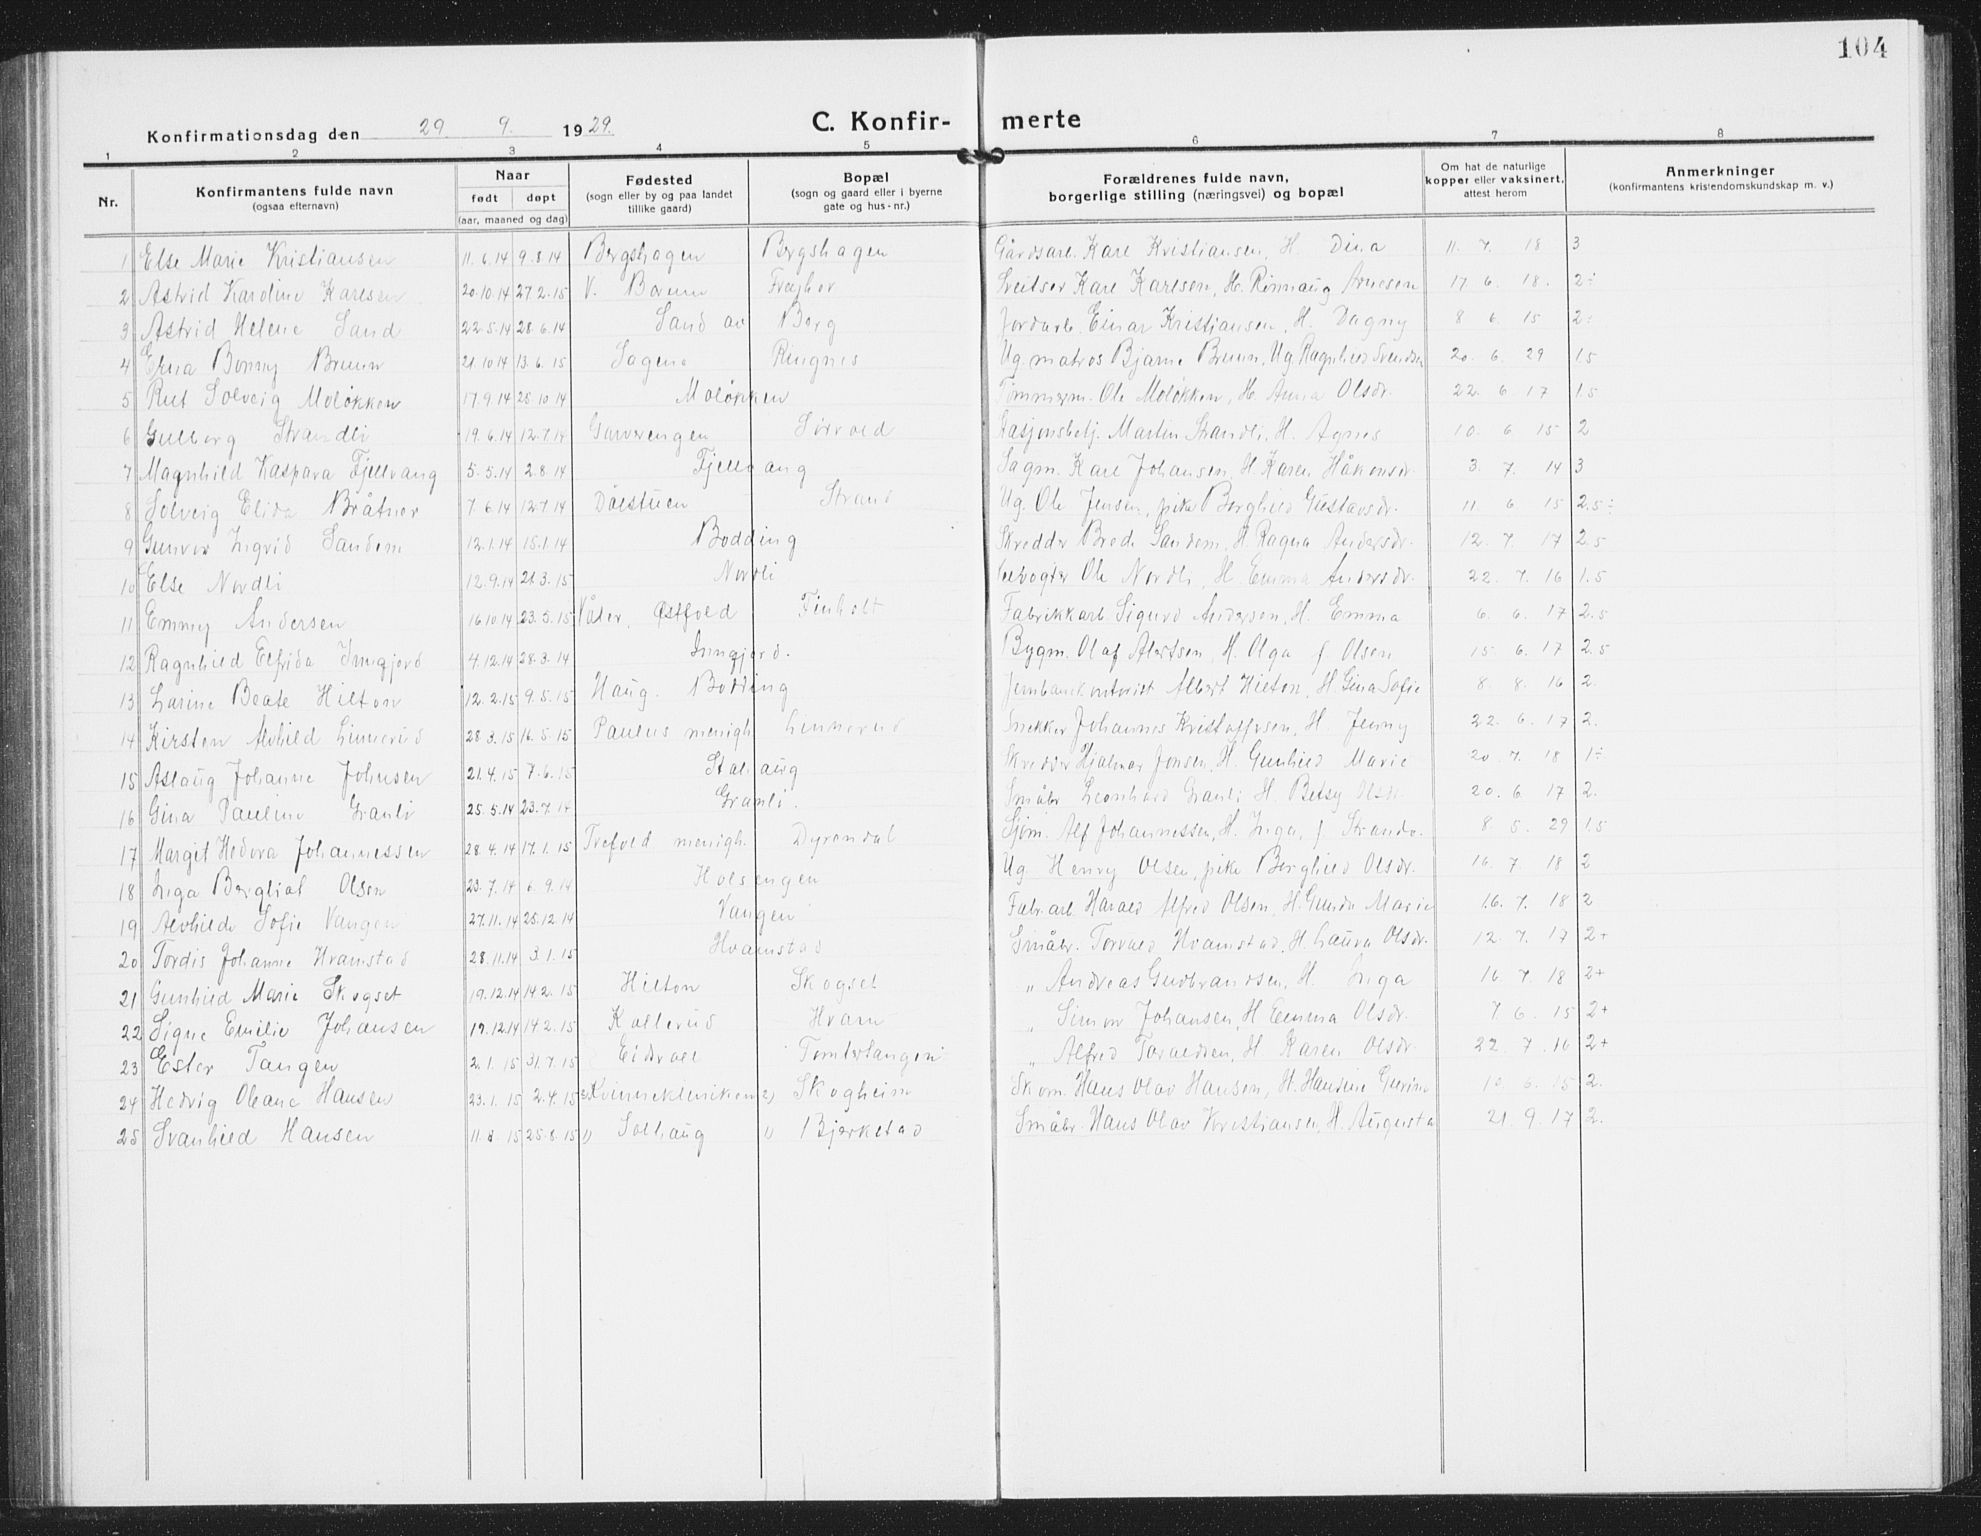 104
Konfirmationsdag den 29 9. 1929.
C. Konfirmerte
1 2 3 4 5 6 7 8
Nr.
Konfirmantens fulde navn
(ogsaa efternavn)
Naar
født døpt
(aar, maaned og dag)
Fødested
(sogn eller by og paa landet
tillike gaard)
Bopæl
(sogn og gaard eller i byerne
gate og hus-nr.)
Forældrenes fulde navn,
borgerlige stilling (næringsvei) og bopæl
Om hat de naturlige
kopper eller vaksinert,
attest herom
Anmerkninger
(konfirmantens kristendomskundskap m. v.)
1 Else Marie Kristiansen 11.6.14 9.8.14 Bergshagen Bergshagen Gårdsarb. Karl Kristiansen, H. Dina 11. 7. 18 3
2 Astrid Karoline Karlsen 20.10.14 27.2.15 V. Bærum Sveitser Karl Karlsen, H. Rønnaug Arnesen 17 6. 18. 2÷
3 Astrid Helene Sand 22.5.14 28.6.14 Sand av Borg Jordarb. Einar Kristiansen, H. Dagny 8 6. 15 2÷
4 Erna Bonny Bruun 21.10.14 13.6.15 Sagene Ringnes Ug. matros Bjarne Bruun, Ug Ragnhild Svendsen 20. 6. 29 1.5
5 Rut Solveig Moløkken 17.9.14 28.10.14 Moløkken Tømmerm. Ole Moløkken, H. Anna Olsdr. 22. 6. 17 1.5
6 Gulborg Strandli 19.6.14 12.7.14 Garverengen Sørvald Stasjonsbetj. Martin Strandli, H. Agnes 10. 6 15 2
7 Magnhild Kaspara Fjellvang 5.5.14 2.8.14 Fjellvang Sagm. Karl Johansen, H. Karen Håkonsdr. 3. 7. 14 3
8 Solveig Elida Bråtner 7.6.14 12.7.14 Dølstuen Strand Ug. Ole Jensen, pike Borghild Gustavsdr. 11 6 15 2.5÷
9 Gunvor Ingrid Sandem 12.1.14 15.1.14 Bodding Skredder Brede Sandem, H. Ragna Andersdr. 12. 7. 17 2.5
10 Else Nordli 12.9.14 21.3.15 Nordli Ole Nordli, H. Emma Andersdr. 22. 7. 16 1.5
11 Emmy Andersen 16.10.14 23.5.15 Våler, Østfold Finholt Fabrikkarb. Sigurd Andersen, H. Emma 6. 6. 17 2.5
12 Ragnhild Elfrida Inngjord 4.12.14 28.3.14 Inngjord. Bygm. Olaf Alertsen, H. Olga f. Olsen 15 6. 17 2.5
13 Larine Beate Hilton 12.2.15 9.5.15 Haug. Bodding Jernbanekontorist Albert Hilton, H. Gina Sofie 8. 8. 16 2.
14 Kirsten Alvhild Linnerud 28.3.15 16.5.15 Paulus menigh. Linnerud Snekker Johannes Kristoffersen, H. Jenny 22. 6. 17 2.
15 Aslaug Johanne Johnsen 21.4.15 7.6.15 Stalhaug Skredder Hjalmar Jonsen, H. Gunhild Marie 20. 7. 18 1÷
16 Gina Pauline Granli 25.5.14 23.7.14 Granli. Småbr. Leonhard Granli H. Betsy Olsen 20. 6 17 2.
17 Margit Hedora Johannessen 28.4.14 17.1.15 Trefold. menigh. Dyrendal Sjøm. Alf Johannessen, H. Inga, f. Strand. 8. 5. 29 1.5
18 Inga Bergliot Olsen 23.7.14 6.9.14 Holsengen Ug. Henry Olsen, pike Borghild Olsdr. 16. 7 18 2
19 Alvhilde Sofie Vangen 27.11.14 25.12.14 Vangen Fabr.arb. Harald Alfred Olsen, H. Gunda Marie 16. 7. 18 2
20 Tordis Johanne Hvamstad 28.11.14 3.1.15 Hvamstad Småbr. Torvald Hvamstad, H. Laura Olsdr. 12. 7. 17 2+
21 Gunhild Marie Skogset 19.12.14 14.2.15 Hilton Skogset „ Andreas Gudbrandsen, H. Inga 16 7. 18 2+
22 Signe Emilie Johansen 19.12.14 14.2.15 Kollerud Hvam „ Simon Johansen, H. Emma Olsdr. 7. 6. 15 2+
23 Ester Tangen 2.1.15 31.7.15 Eidsvoll Tomtertangen „ Alfred Toraldsen, H. Karen Olsdr 22. 7. 16 2+
24 Hedvig Oleane Hansen 23.1.15 2.4.15 Kvinneklinikken Skogheim Skom. Hans Olav Hansen, H. Hansine Gurine 10. 6. 15 2.
25 Svanhild Hansen 11.8.15 25.8.15 „ Solhaug „ Bjerkstad Småbr. Hans Olav Kristiansen, H. Augusta 21. 9. 17 2.